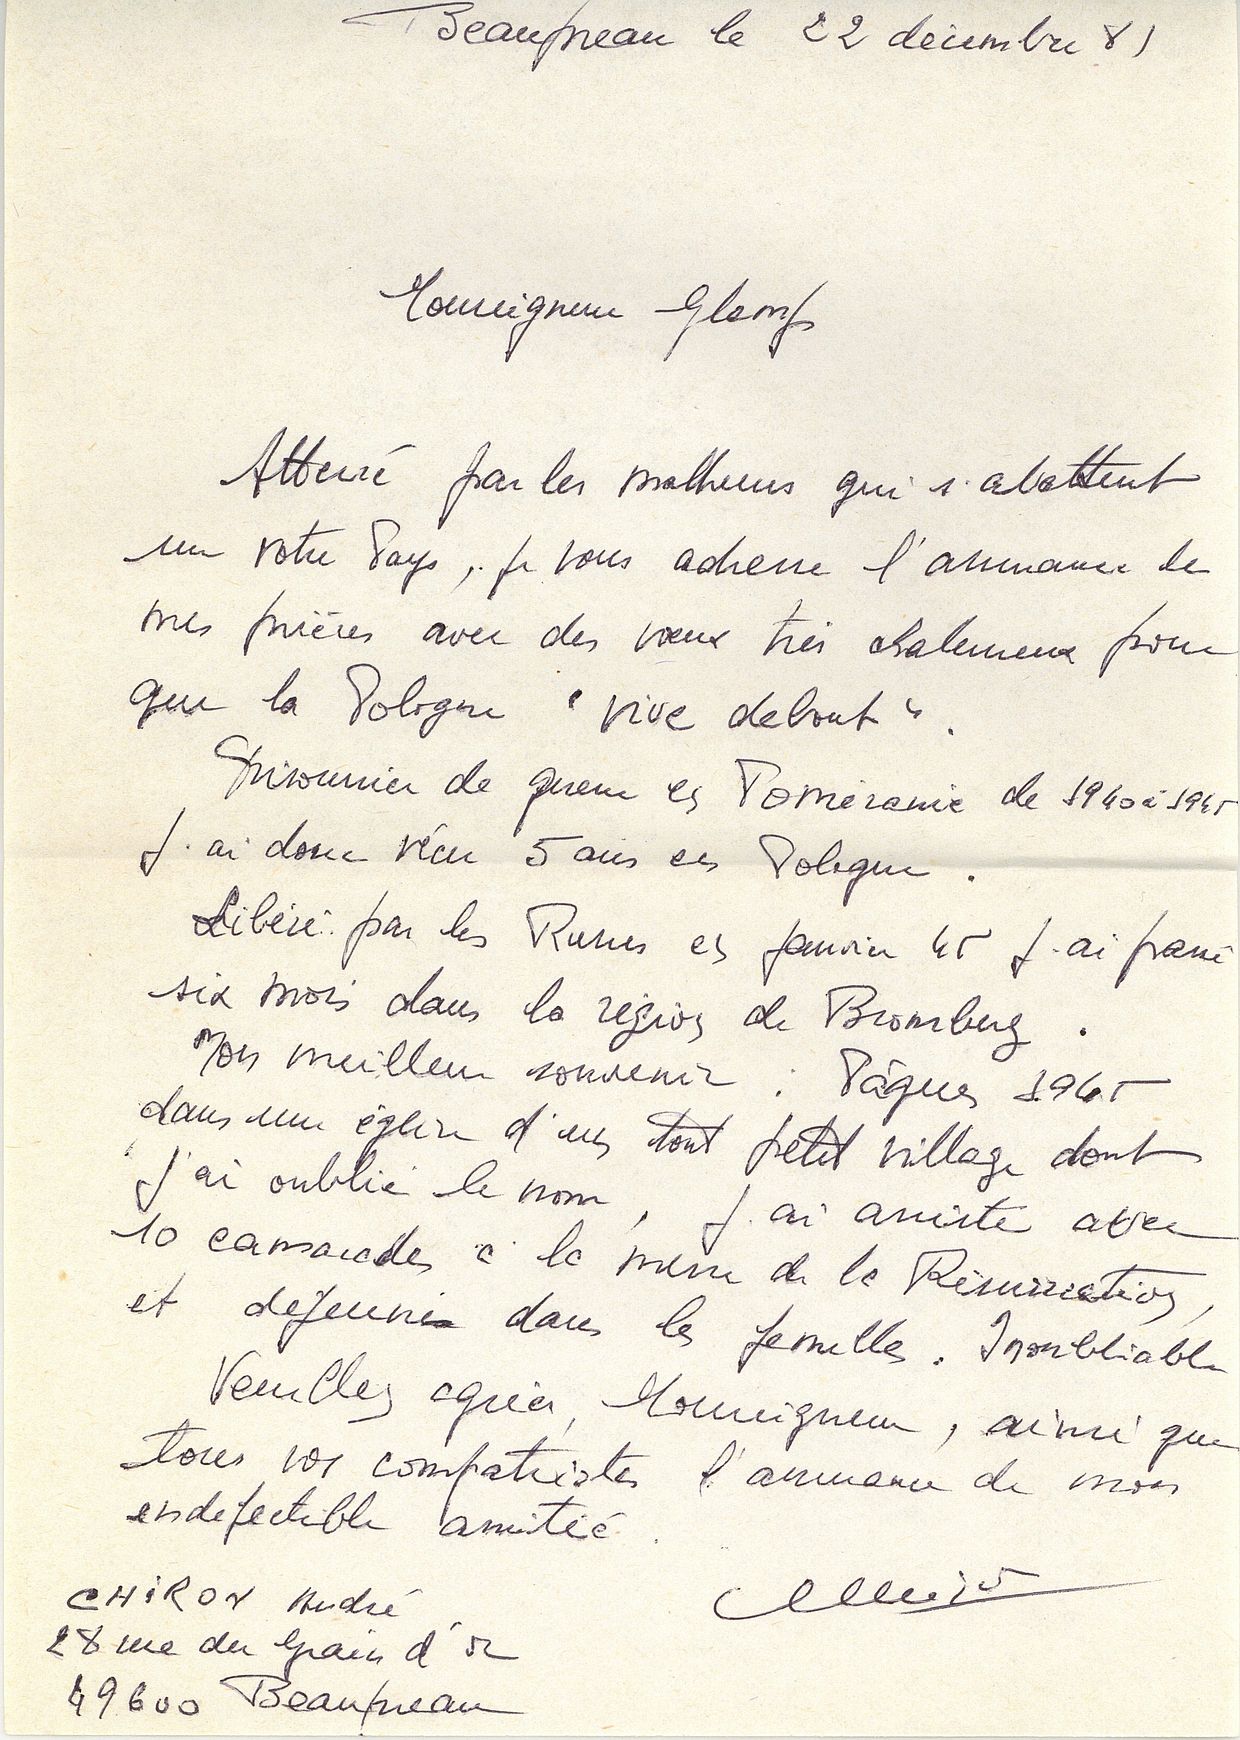 Beaupreau le 22 décembre 81
Monseigneur Glemp
Atterré par les malheurs qui s'abattent
sur votre Pays, je vous adresse l'assurance de
mes prières avec des vœux très chaleureux pour
que la Pologne "vive debout".
Prisonnier de guerre en Poméranie de 1940 à 1945
j'ai donc vécu 5 ans en Pologne.
Libéré par les Russes en janvier 45 j'ai passé
six mois dans la région de Bromberg.
Mon meilleur souvenir : Pâques 1945
dans une église d'un tout petit village dont
j'ai oublié le nom, j'ai assisté avec
10 camarades à la messe de la Résurrection,
et déjeuné dans les familles. Inoubliable
Veuillez agréer, Monseigneur, ainsi que
tous vos compatriotes l'assurance de mon
indefectible amitié.
CHIRON André
28 rue du Grain d'or
49600 Beaupreau